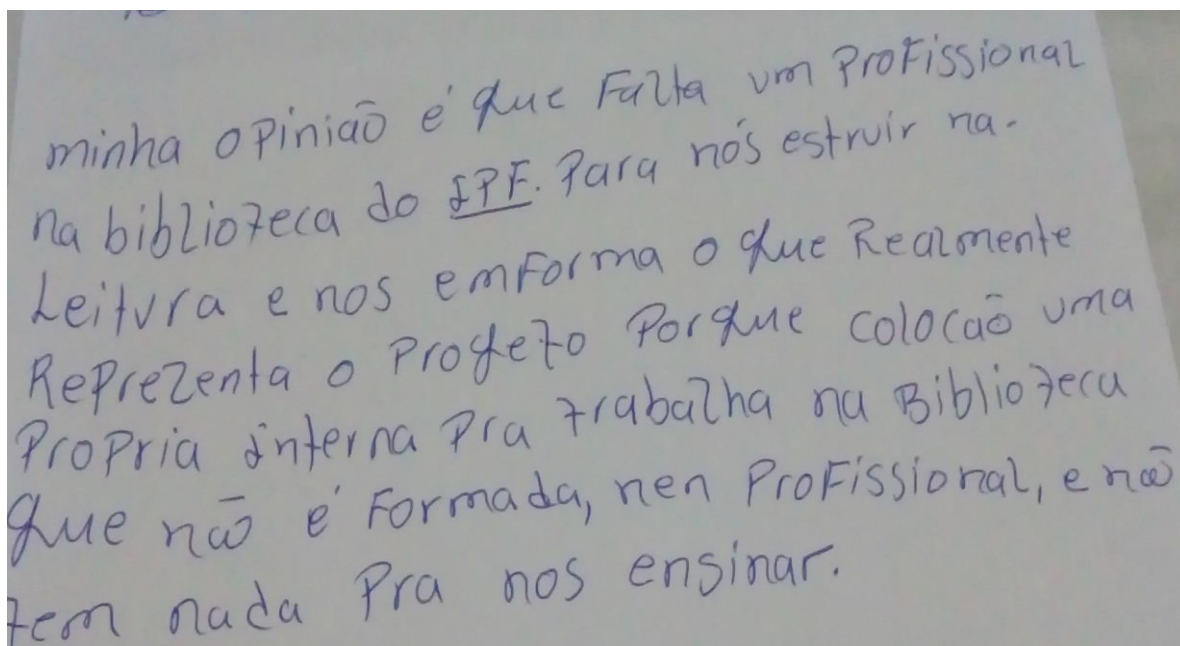 minha opinião é que Falta um Profissional
na biblioteca do IPF. Para nós estruir na.
Leitura e nos emForma o que Realmente
Reprezenta o Progeto Porque colocão uma
Propria interna Pra trabalha na Biblioteca
que não é Formada, nen ProFissional, e não
tem nada Pra nos ensinar.